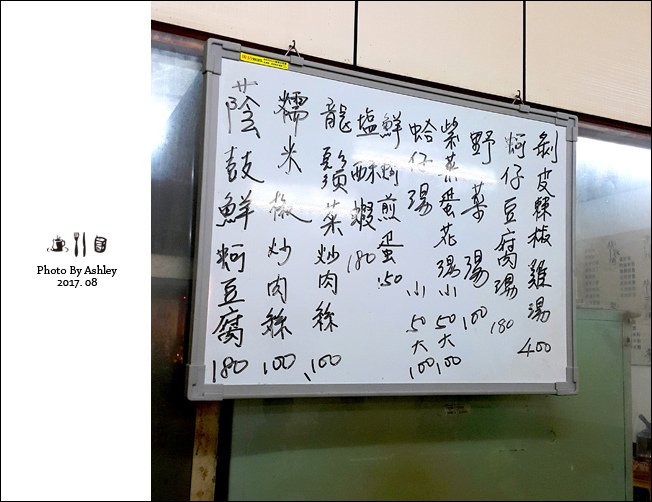 剝皮辣椒雞湯 400
蚵仔豆腐湯 180
野菜湯 100
紫菜蛋花湯 小 50 大 100
蛤仔湯 小 50 大 100
鮮蚵煎蛋 150
塩酥蝦 180
龍鬚菜炒肉絲 100
糯米椒炒肉絲 100
蔭鼓鮮蚵豆腐 180
Photo By Ashley
2017. 08